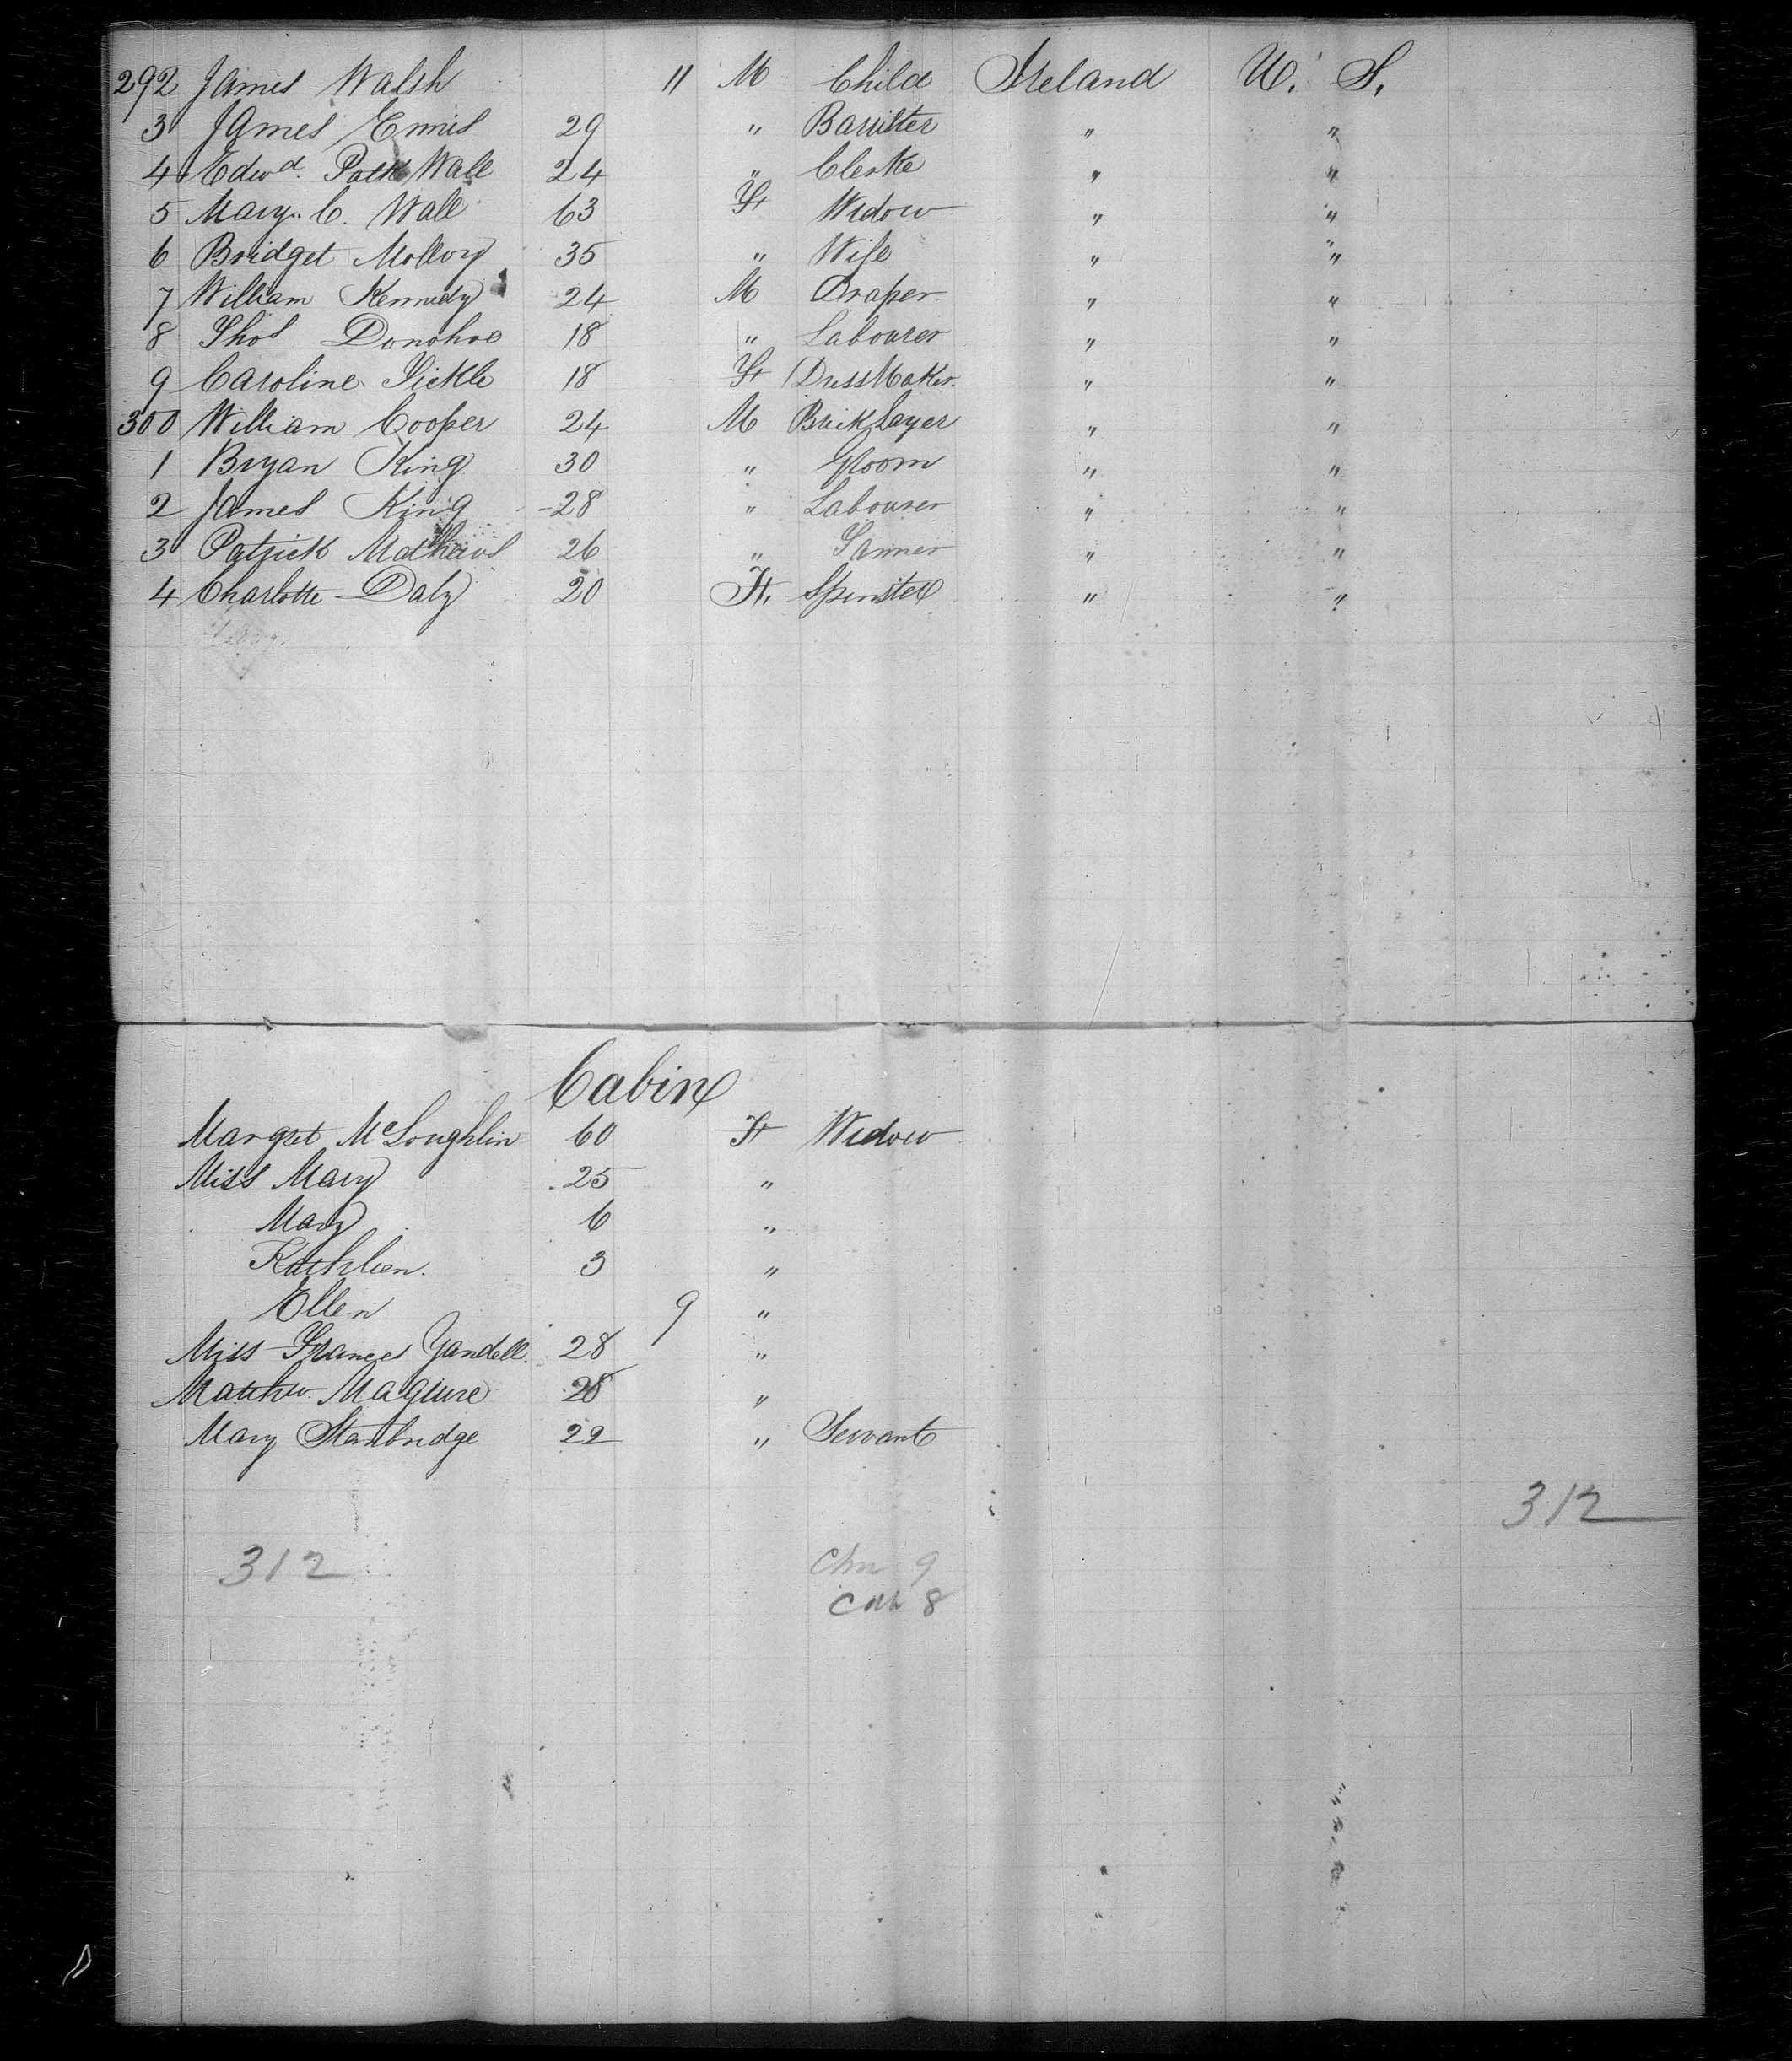 292 James Walsh 11 M Child Ireland U. S.
3 James Ennis 29 " Barrister " "
4 Edwd. Patk Wall 24 " Clerke " "
5 Mary. C. Wall 63 F Widow " "
6 Bridget Molloy 35 " Wife " "
7 William Kennedy 24 M Draper " "
8 Thos Donohoe 18 " Labourer " "
9 Caroline Tickle 18 F Dress Maker. " "
300 William Cooper 24 M Brick Layer " "
1 Bryan King 30 " Groom " "
2 James King 28 " Labourer " "
3 Patrick Mathews 26 " Tanner " "
4 Charlotte Daly 20 F. Spinster " "
Cabin
Margret McLoughlin 60 F Widow
Miss Mary 25 "
Mary 6 "
Kathleen. 3 "
Ellen 9 "
Miss Frances Yandell. 28 "
Matthw. Maguire 28 "
Mary Stanbridge 22 " Servant
312
312 Chn 9
Cab 8